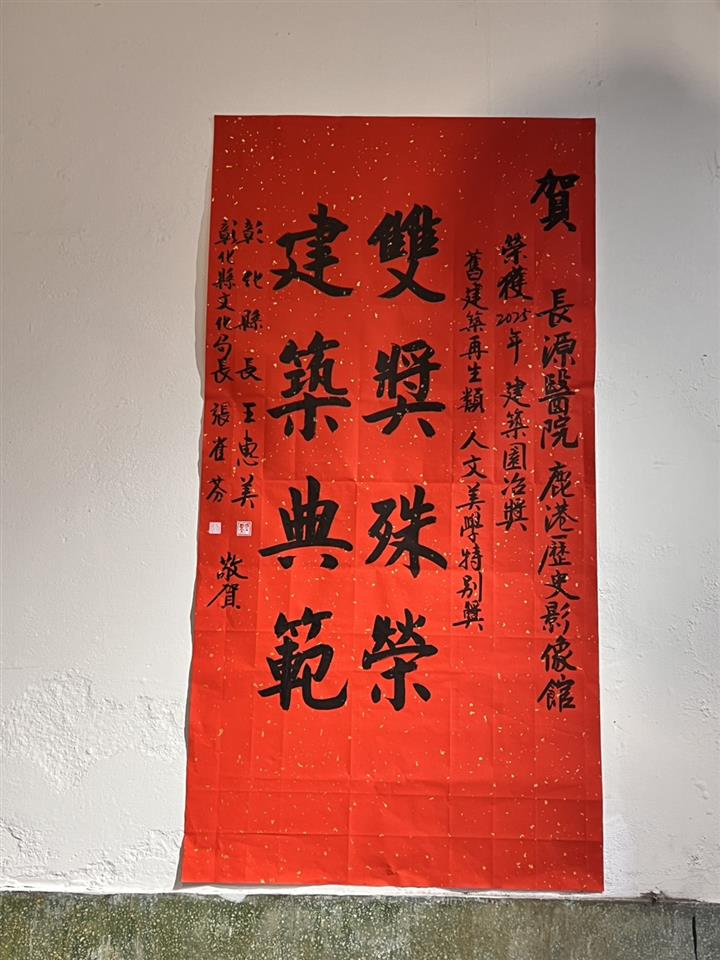 賀
長源醫院 鹿港歷史影像館
榮獲2025年 建築園冶獎
舊建築再生類 人文美學特別獎
雙獎殊榮
建築典範
彰化縣長 王惠美
彰化縣文化局長 張雀芬
敬賀